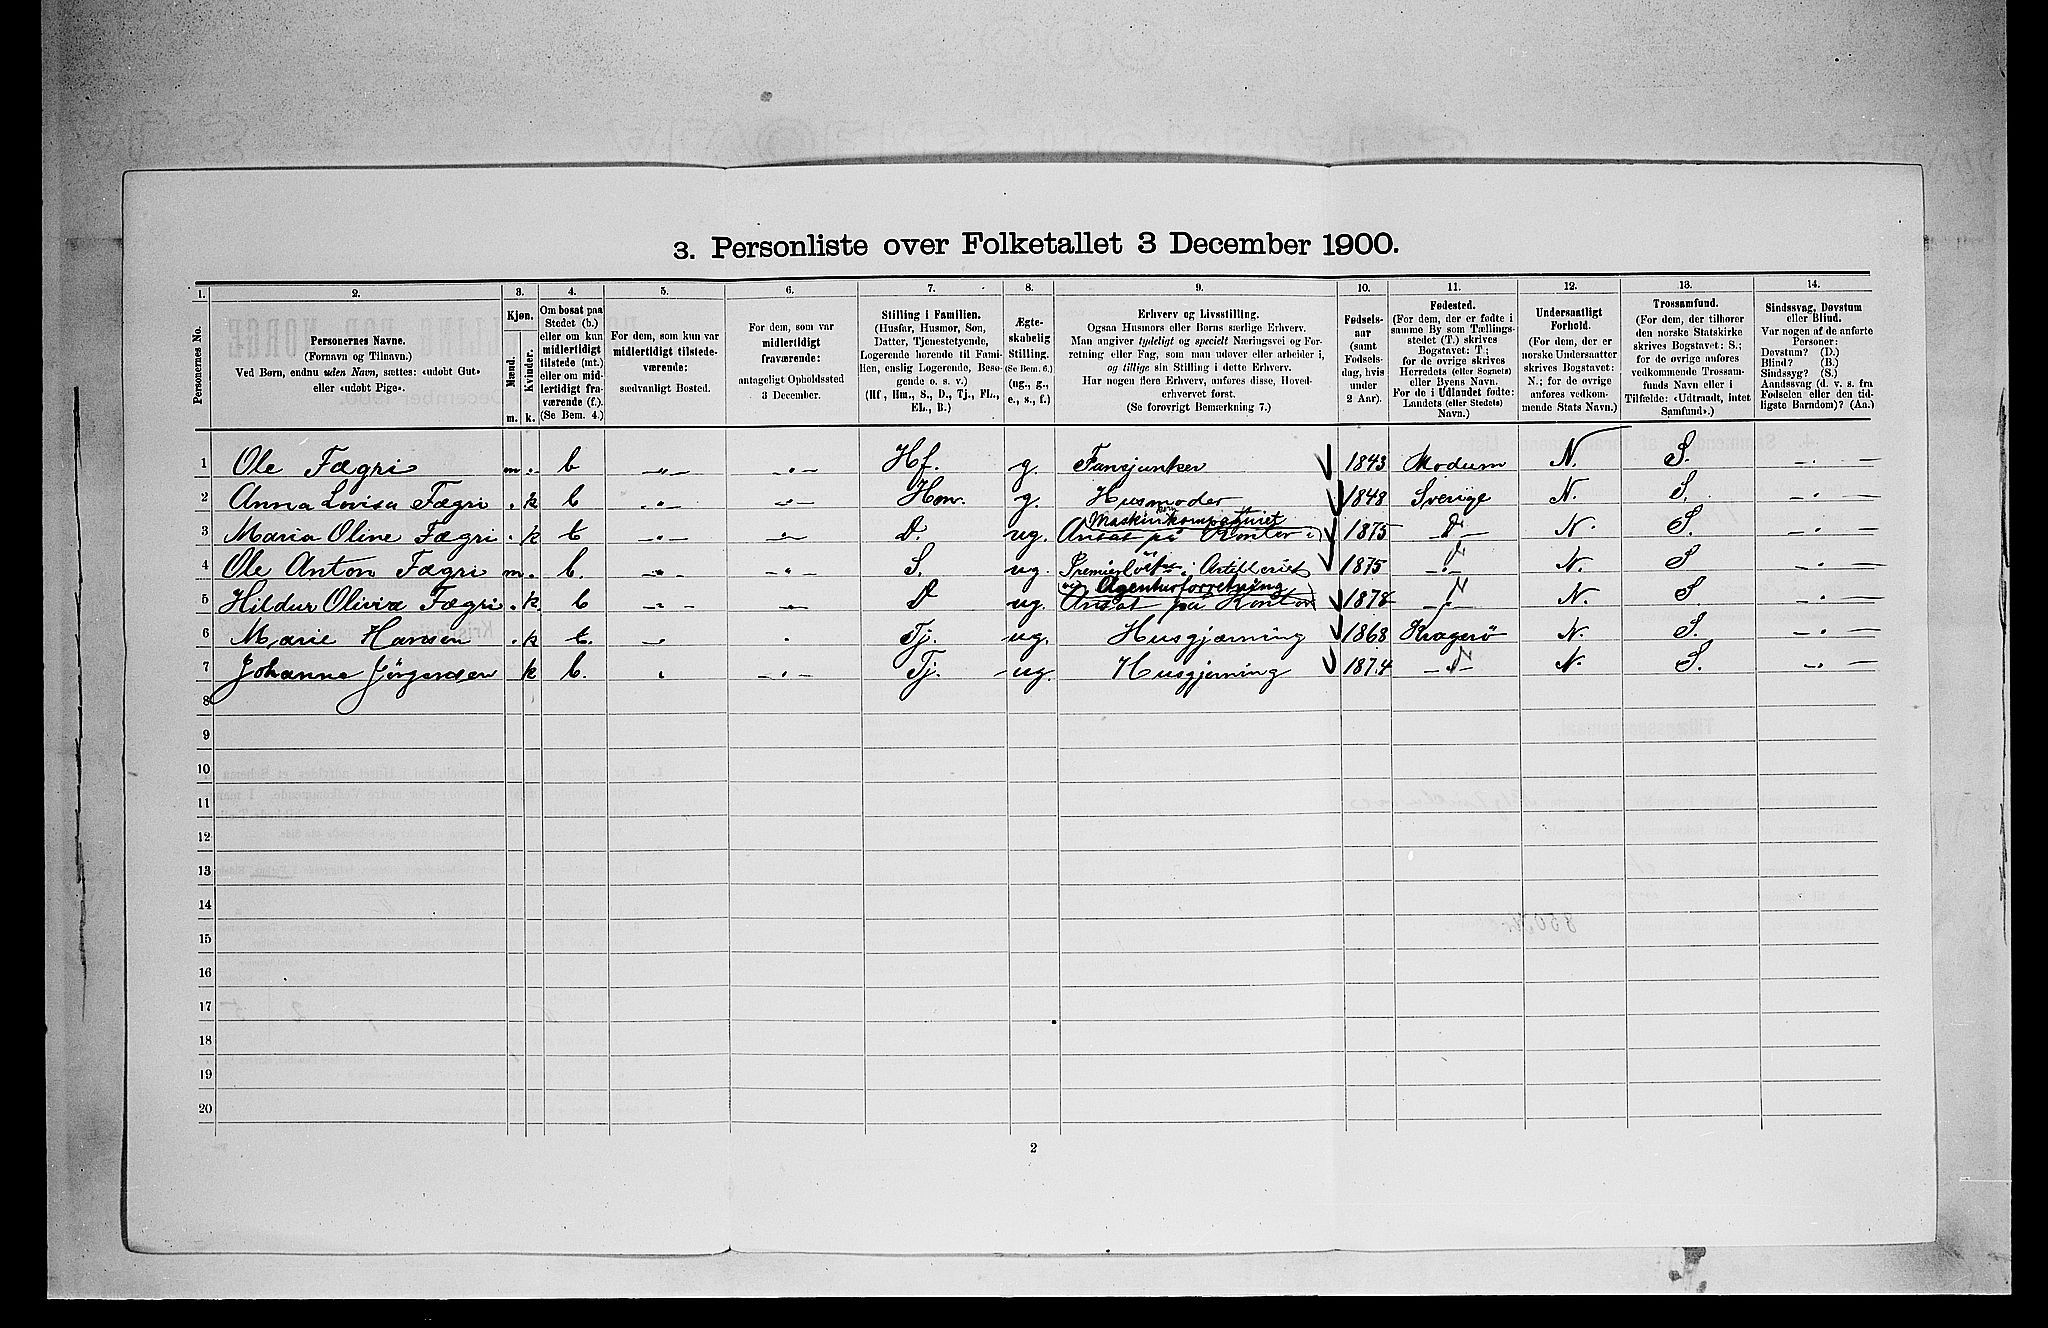 3. Personliste over Folketallet 3 December 1900.
1. 2. 3. 4. 5. 6. 7. 8. 9. 10. 11. 12. 13. 14.
Personernes No.
Personernes Navne.
(Fornavn og Tilnavn.)
Ved Børn, endnu uden Navn, sættes: «udøbt Gut»
eller «udøbt Pige».
Kjøn.
Mænd.
Kvinder.
m. k.
Om bosat paa
Stedet (b.)
eller om kun
midlertidigt
tilstede (mt.)
eller om mid-
lertidigt fra-
værende (f.).
(Se Bem. 4.)
For dem, som kun var
midlertidigt tilstede-
værende:
sædvanligt Bosted.
For dem, som var
midlertidigt
fraværende:
antageligt Opholdssted
3 December.
Stilling i Familien.
(Husfar, Husmor, Søn,
Datter, Tjenestetyende,
Logerende hørende til Fami-
lien, enslig Logerende, Besø-
gende o. s. v.)
(Hf., Hm., S., D., Tj., FL.,
EL., B.)
Ægte-
skabelig
Stilling.
(Se Bem. 6.)
(ug., g.,
e., s., f.)
Erhverv og Livsstilling.
Ogsaa Husmors eller Børns særlige Erhverv.
Man angiver tydeligt og specielt Næringsvei og For-
retning eller Fag, som man udøver eller arbeider i,
og tillige sin Stilling i dette Erhverv.
Har nogen flere Erhverv, anføres disse, Hoved-
erhvervet først.
(Se forøvrigt Bemærkning 7.)
Fødsels-
aar
(samt
Fødsels-
dag, hvis
under
2 Aar).
Fødested.
(For dem, der er fødte i
samme By som Tællings-
stedet (T.) skrives
Bogstavet: T;
for de øvrige skrives
Herredets (eller Sognets)
eller Byens Navn.
For de i Udlandet fødte:
Landets (eller Stedets)
Navn.)
Undersaatligt
Forhold.
(For dem, der er
norske Undersaatter
skrives Bogstavet:
N.; for de øvrige
anføres vedkom-
mende Stats Navn.)
Trossamfund.
(For dem, der tilhører
den norske Statskirke
skrives Bogstavet: S.;
for de øvrige anføres
vedkommende Trossam-
funds Navn eller i
Tilfælde: «Udtraadt, intet
Samfund».)
Sindssvag, Døvstum
eller Blind.
Var nogen af de anførte
Personer:
Døvstum? (D.)
Blind? (B.)
Sindssyg? (S.)
Aandssvag (d. v. s. fra
Fødselen eller den tid-
ligste Barndom)? (Aa.)
1 Ole Fægri m. b Hf. g. Fanejunker 1843 Modum N. S.
2 Anna Lovisa Fægri k b Hm. g. Husmoder 1848 Sverige N. S.
3 Maria Oline Fægri k b D. ug. Ansat på Kontor i Maskinkompagniet 1875 N. S.
4 Ole Anton Fægri m. b. S. ug. Premierløitn. i Artilleriet 1875 N. S
5 Hildur Olivia Fægri k b D ug. Ansat på Kontor ved Agenturforretning 1878 N. S
6 Marie Hansen k b. Tj. ug. Husgjærning 1868 Kragerö N. S.
7 Johanne Jörgensen k b. Tj. ug. Husgjerning 1874 N. S.
8
9
10
11
12
13
14
15
16
17
18
19
20
2